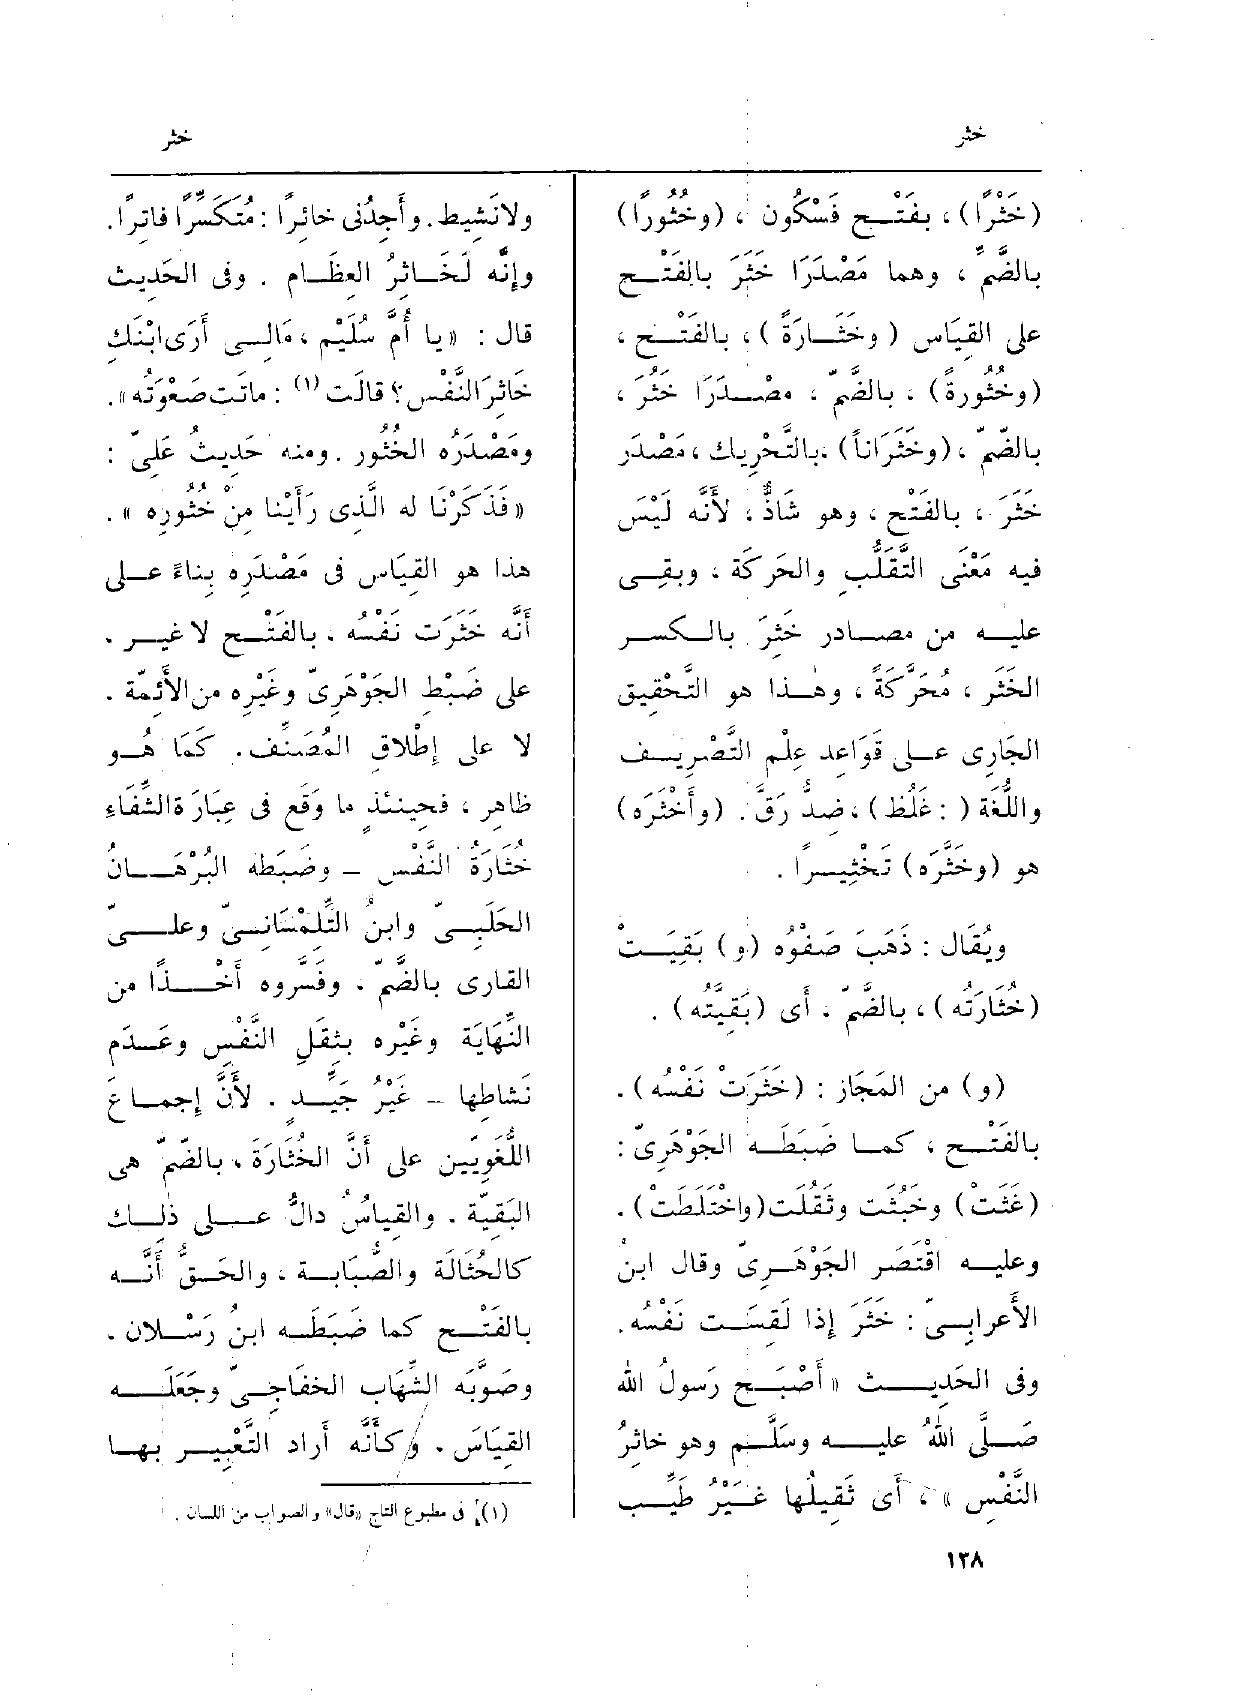 خثر
خثر
(خَثْرًا)، بفَتْح فَسْكُون، (وخُثُورًا)
بالضَّمِّ، وهما مَصْدَرَا خَثَرَ بالفَتْح
على القِيَاس (وخَثَارَةً)، بالفَتْح،
(وخُثُورةً)، بالضَّمّ، مصْدَرَا خَثُرَ،
بالضّمّ، (وخَثَرَاناً)، بالتَّحْرِيك، مَصْدَر
خَثَرَ، بالفَتْح، وهو شَاذٌّ، لأَنَّه لَيْسَ
فيه مَعْنَى التَّقَلُّب والحَرَكَة، وبقِى
عليه من مصادر خَثِرَ بالكسر
الخَثَر، مُحَرَّكَةً، وهذا هو التَّحْقِيق
الجَارِى على قَوَاعِد عِلْمِ التَّصْرِيف
واللُّغَة (: غَلُظ)، ضِدُّ رَقَّ. (وأَخْثَرَه)
هو (وخَثَّرَه) تَخْثِيرًا.
ويُقَال : ذَهَبَ صَفْوُه (و) بَقِيَتْ
(خُثَارَتُه)، بالضَّمّ، أَى (بَقِيَّتُه).
(و) من المَجَاز : (خَثَرَتْ نَفْسُه).
بالفَتْح، كما ضَبَطَه الجَوْهَرِىّ :
(غَثَتْ) وخَبُثَت وثَقُلَت (واخْتَلَطَتْ).
وعليه اقْتَصَر الجَوْهَرِىّ وقال ابنُ
الأَعرابىّ : خَثَرَ إِذا لَقِسَت نَفْسُه.
وفى الحَدِيث «أَصْبَح رَسولُ الله
صَلَّى اللهُ عليه وسَلَّم وهو خاثِرُ
النَّفْس»، أَى ثَقِيلُها غَيْرُ طَيِّب
ولا نَشِيط. وأَجِدُنى خاثِرًا : مُتَكَسِّرًا فاتِرًا.
وإِنَّه لَخَاثِرُ العِظَام. وفى الحَدِيث
قال : «يا أُمَّ سُلَيْم، مَالِى أَرَى ابْنَكِ
خَاثِرَ النَّفْس؟ قالَت (١) : ماتَت صَعْوَتُه».
ومَصْدَرُه الخُثُور. ومنه حَدِيثُ عَلِىّ :
«فَذَكَرْنَا له الَّذى رَأَيْنا مِنْ خُثُورِه».
هذا هو القِيَاس فى مَصْدَرِه بِنَاءً على
أَنَّه خَثَرَت نَفْسُه، بالفَتْح لا غير.
على ضَبْط الجَوْهَرِىّ وغَيْرِه من الأَئِمّة.
لا على إِطْلاقِ المُصَنِّف. كَمَا هُو
ظاهر، فحِينئذٍ ما وَقَع فى عِبَارَة الشِّفَاءِ
خُثَارَةُ النَّفْس – وضَبَطَه البُرْهَانُ
الحَلَبِىّ وابنُ التِّلِمْسَانِىّ وعلىّ
القارى بالضَّمّ. وفَسَّروه أَخْذًا من
النِّهَايَة وغَيْرِه بثِقَلِ النَّفْس وعَدَم
نَشَاطِها – غَيْرُ جَيِّدٍ. لأَنَّ إِجماعَ
اللُّغَوِيّين على أَنَّ الخُثَارَةَ، بالضّمّ هى
البَقيّة. والقياسُ دالٌّ على ذلك
كالحُثَالَة والصُّبَابَة، والحَقُّ أَنَّه
بالفَتْح كما ضَبَطَه ابنُ رَسْلان.
وصَوَّبَه الشِّهَاب الخفَاجِىّ وجَعَلَه
القِيَاسَ. وكأَنَّه أَراد التَّعْبِير بها
(١) فى مطبوع التاج «قال» والصواب من اللسان.
١٣٨